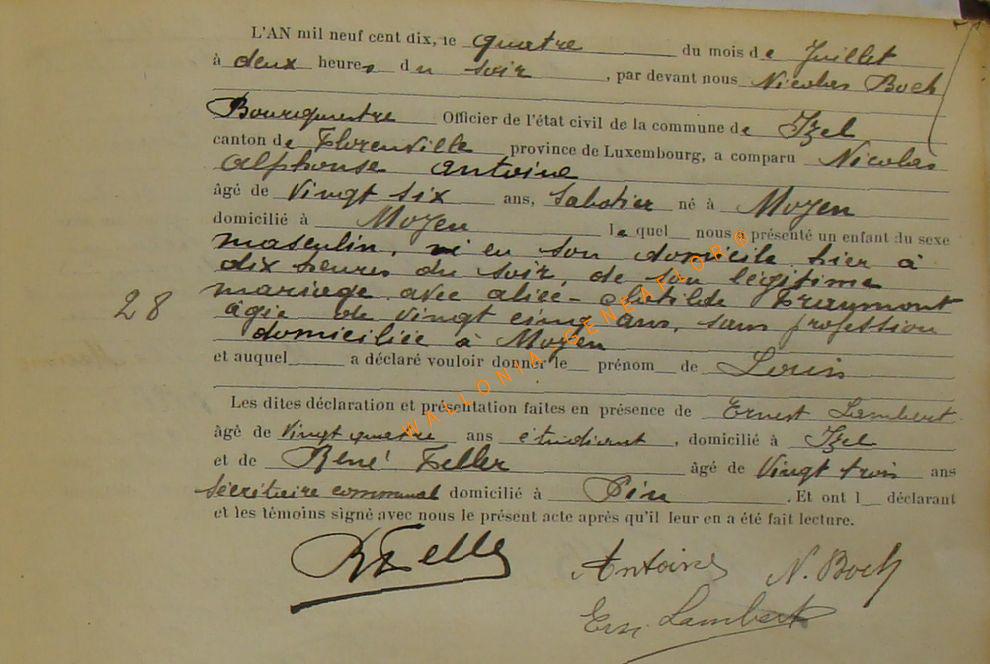 L'AN mil neuf cent dix, le quatre du mois de Juillet
à deux heures du soir, par devant nous Nicolas Boch
Bourquestre Officier de l'état civil de la commune de Izel
canton de Florenville province de Luxembourg, a comparu Nicolas
alphonse antoine
âgé de Vingt six ans, Sabotier né à Moyen
domicilié à Moyen Le quel nous a présenté un enfant du sexe
masculin, né en son domicile hier à
dix heures du soir, de son légitime
mariage avec alice - Clotilde Fraymont
28
âgée de vingt cinq ans, sans profession
domiciliée à Moyen
et auquel a déclaré vouloir donner le prénom de Louis
WALLONIA-GENEAFLOR®
Les dites déclaration et présentation faites en présence de Ernest Lambert
âgé de Vingt quatre ans étudiant, domicilié à Izel
et de René Feller âgé de Vingt trois ans
Sécrétaire communal domicilié à Pin. Et ont l déclarant
et les témoins signé avec nous le présent acte après qu'il leur en a été fait lecture.
R Feller Antoine N. Boch
Ern. Lambert